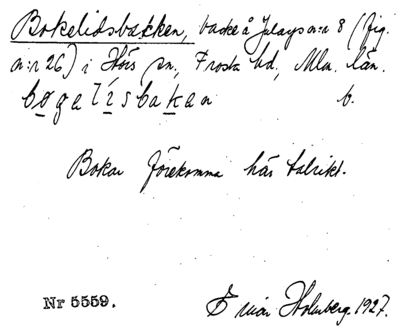 Bokelidsbacken, backe å Jularp n:r 8 (fig.
n:r 26) i Hörs sn, Frosta hd, Mlm. län.
bogalísbakan b.
Bokar förekomma här talrikt.
Nr 5559. Einar Holmberg. 1927.